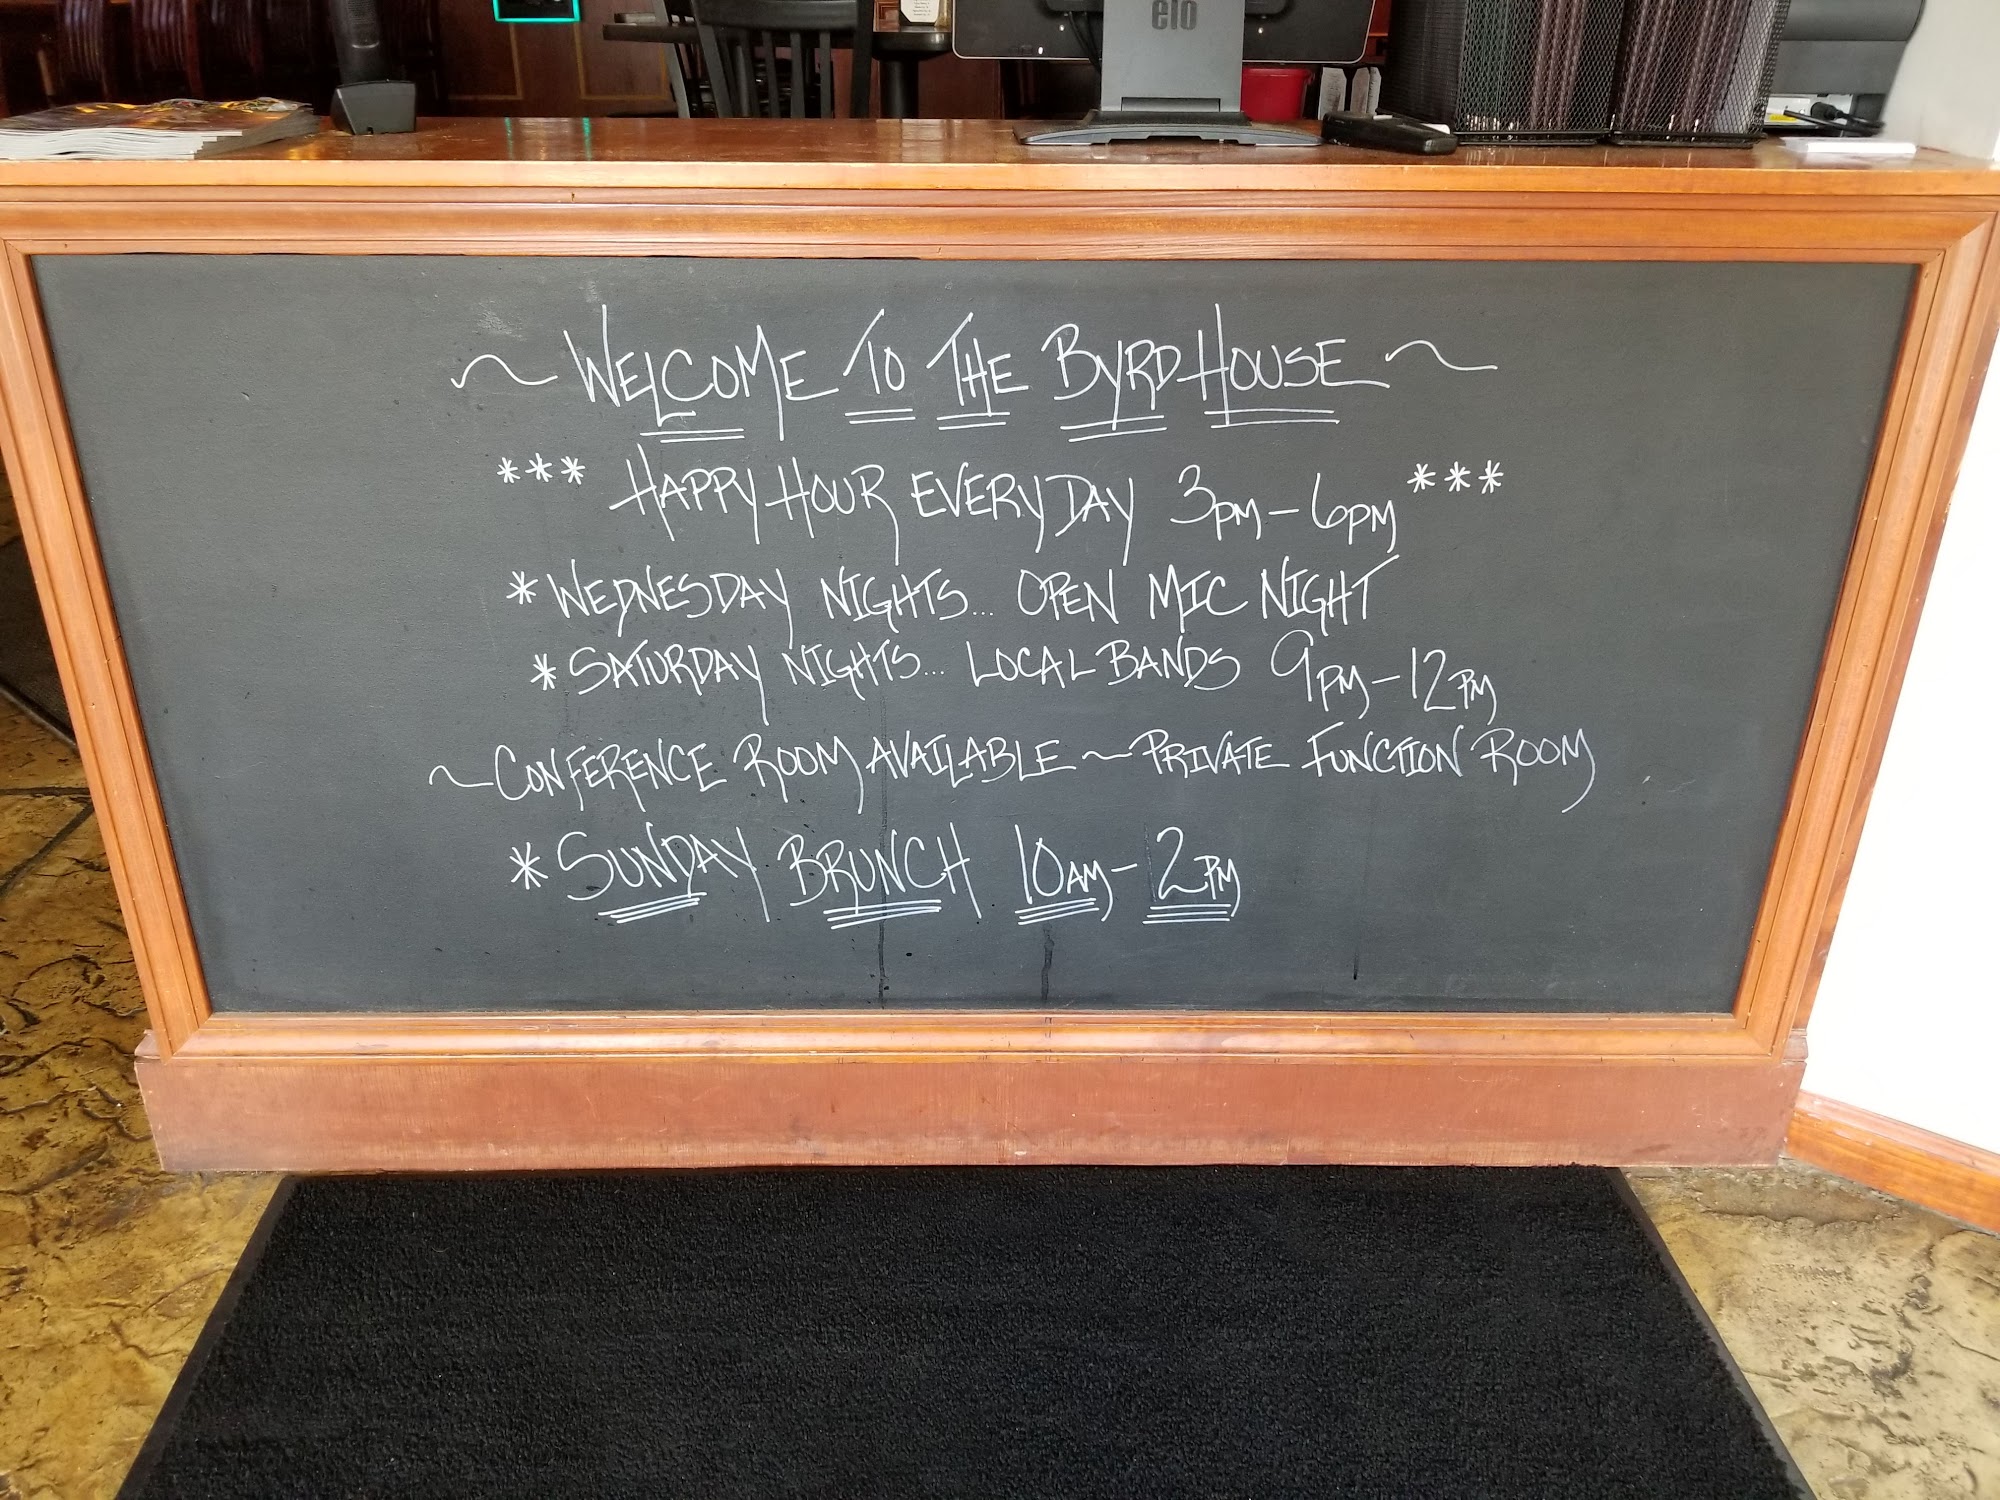 elo
~ WELCOME TO THE BYRDHOUSE ~
*** HAPPY HOUR EVERYDAY 3PM - 6PM ***
* WEDNESDAY NIGHTS... OPEN MIC NIGHT
* SATURDAY NIGHTS... LOCAL BANDS 9PM - 12PM
~ CONFERENCE ROOM AVAILABLE ~ PRIVATE FUNCTION ROOM
* SUNDAY BRUNCH 10AM - 2PM